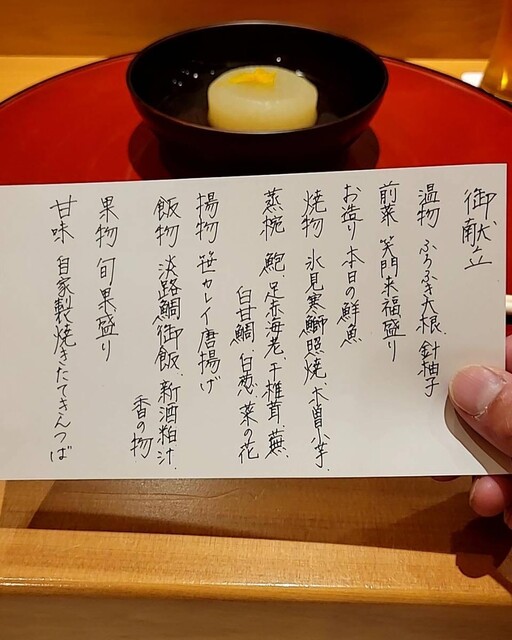 御献立
温物 ふろふき大根、針柚子
前菜 笑門来福盛り
お造り 本日の鮮魚
焼物 氷見寒鰤照焼、木曽小芋、
蒸椀 鮑、足赤海老、干椎茸、蕪、
白甘鯛、白葱、菜の花
揚物 笹カレイ唐揚げ
飯物 淡路鯛御飯、新酒粕汁、
香の物
果物 旬果盛り
甘味 自家製焼きたてきんつば